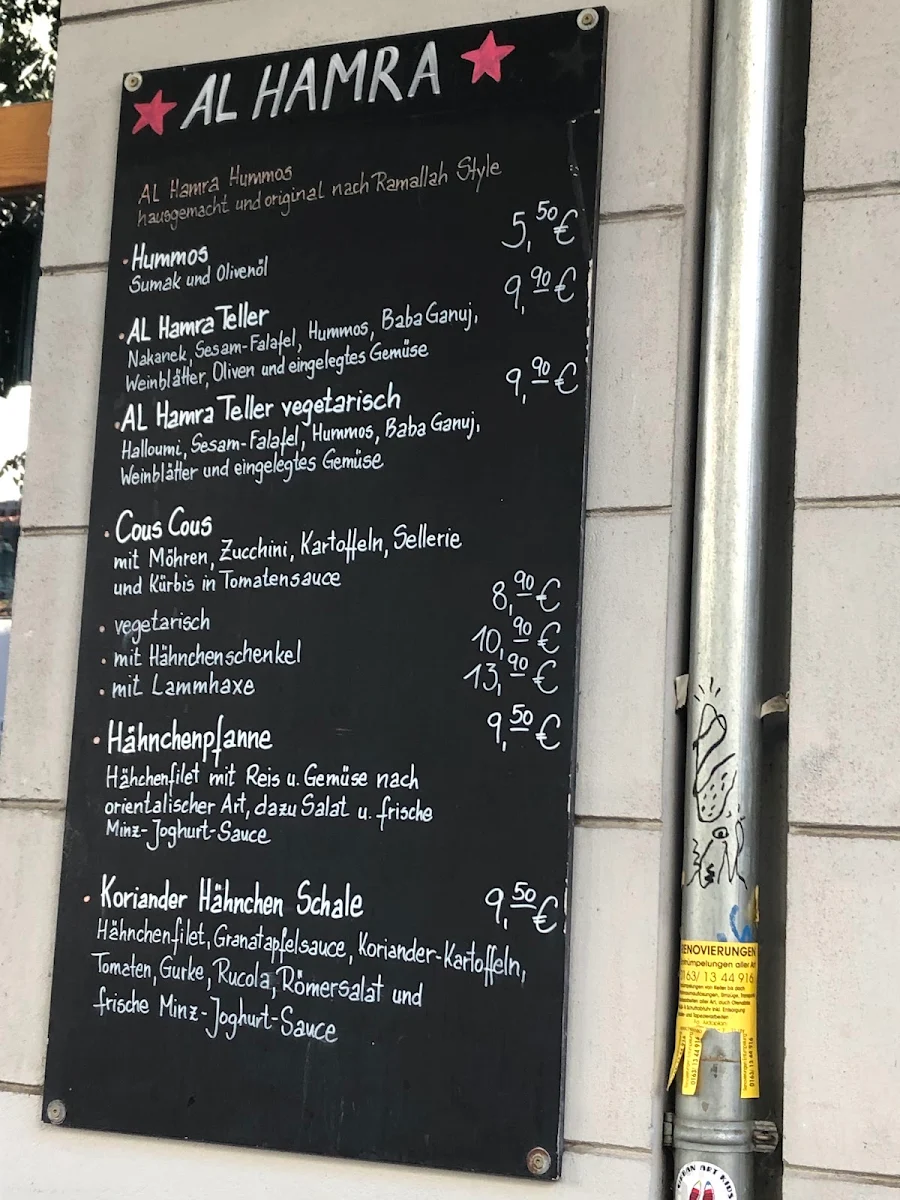 AL HAMRA
AL Hamra Hummos
hausgemacht und original nach Ramallah Style
5,50€
Hummos
Sumak und Olivenöl
9,90€
AL Hamra Teller
Nakanek, Sesam-Falafel, Hummos, Baba Ganuj,
Weinblätter, Oliven und eingelegtes Gemüse
9,90€
AL Hamra Teller vegetarisch
Halloumi, Sesam-Falafel, Hummos, Baba Ganuj,
Weinblätter und eingelegtes Gemüse
Cous Cous
mit Möhren, Zucchini, Kartoffeln, Sellerie
und Kürbis in Tomatensauce
vegetarisch 8,90€
mit Hähnchenschenkel 10,90€
mit Lammhaxe 13,90€
Hähnchenpfanne 9,50€
Hähchenfilet mit Reis u. Gemüse nach
orientalischer Art, dazu Salat u. frische
Minz-Joghurt-Sauce
Koriander Hähnchen Schale 9,50€
Hähnchenfilet, Granatapfelsauce, Koriander-Kartoffeln,
Tomaten, Gurke, Rucola, Römersalat und
frische Minz-Joghurt-Sauce
RENOVIERUNGEN
aller Art
0163/ 13 44 916
0163/ 13 44 916
0163/ 13 44 916